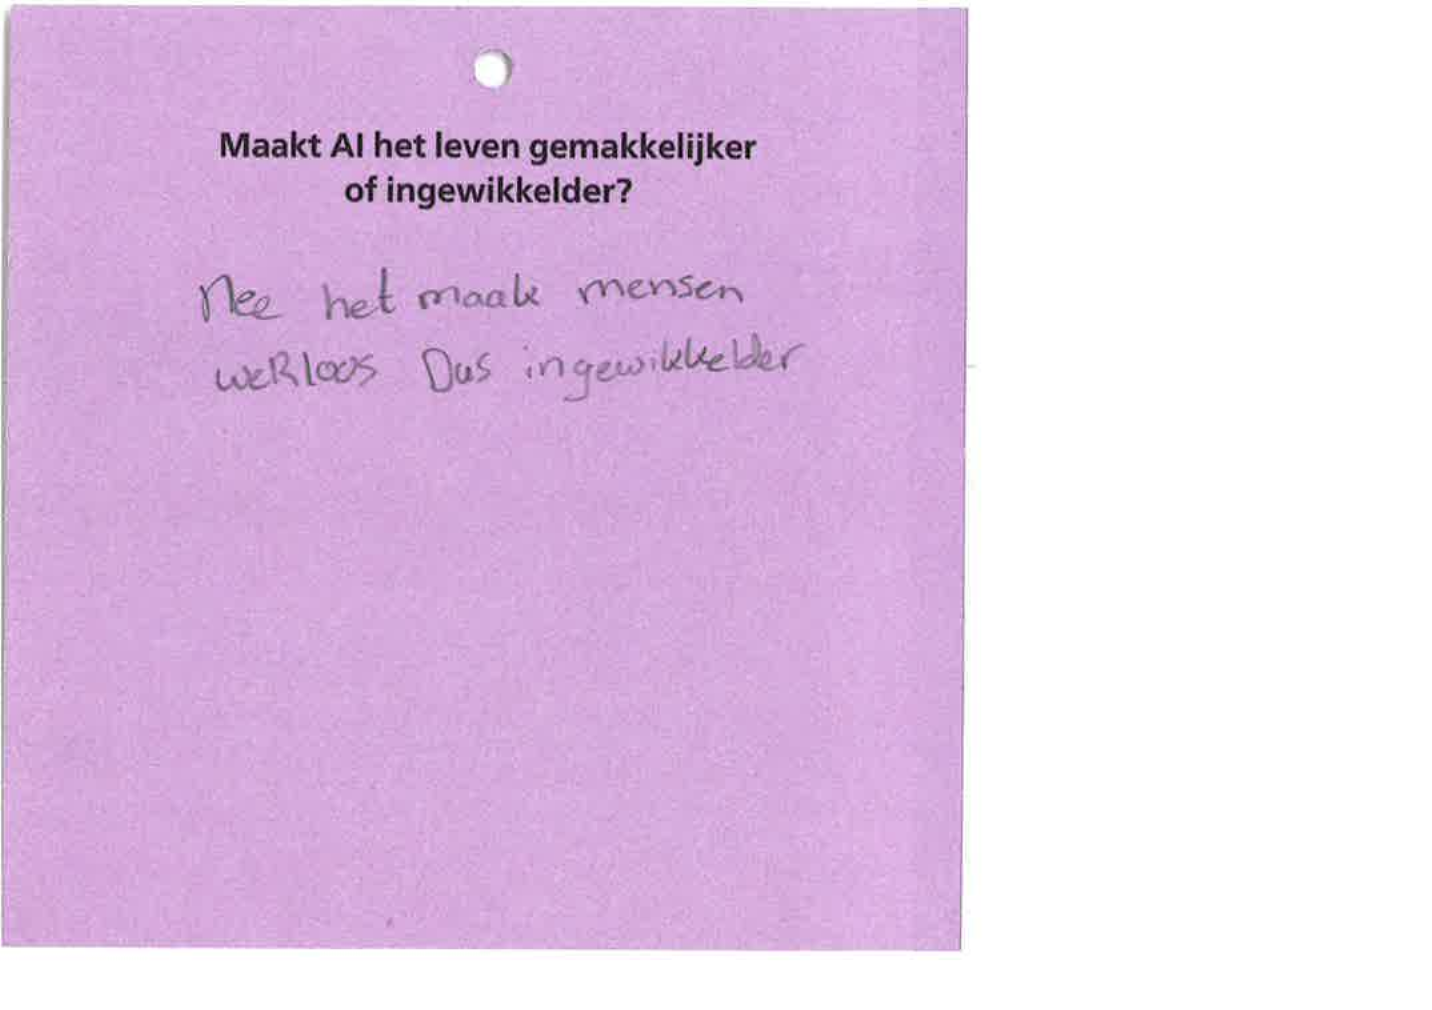 Maakt AI het leven gemakkelijker
of ingewikkelder?
Nee het maakt mensen
weRloos Dus ingewikkelder